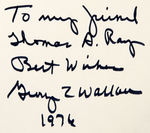 To my friend
Thomas S. Ray
Best Wishes
George C Wallace
1976